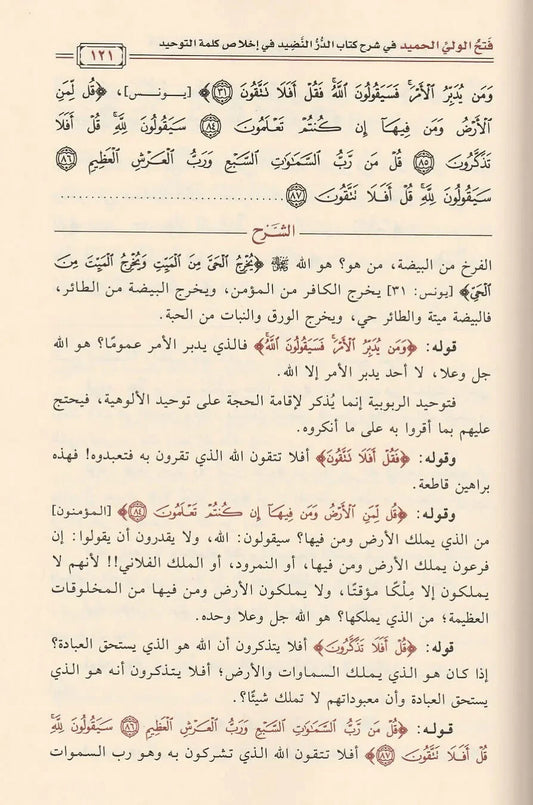 فَتحُ الوليِّ الحميد في شرح كتاب الدُّرِّ النَّضِيد في إخلاص كلمة التوحيد
١٢١
وَمَن يُدَبِّرُ ٱلۡأَمۡرَۚ فَسَيَقُولُونَ ٱللَّهُۚ فَقُلۡ أَفَلَا تَتَّقُونَ ٣١﴾ [يونس]، ﴿قُل لِّمَنِ
ٱلۡأَرۡضُ وَمَن فِيهَآ إِن كُنتُمۡ تَعۡلَمُونَ ٨٤ سَيَقُولُونَ لِلَّهِۚ قُلۡ أَفَلَا
تَذَكَّرُونَ ٨٥ قُلۡ مَن رَّبُّ ٱلسَّمَٰوَٰتِ ٱلسَّبۡعِ وَرَبُّ ٱلۡعَرۡشِ ٱلۡعَظِيمِ ٨٦
سَيَقُولُونَ لِلَّهِۚ قُلۡ أَفَلَا تَتَّقُونَ ٨٧ ........................................
الشَّرح
الفرخ من البيضة، من هو؟ هو الله ﷻ ﴿يُخۡرِجُ ٱلۡحَيَّ مِنَ ٱلۡمَيِّتِ وَيُخۡرِجُ ٱلۡمَيِّتَ مِنَ
ٱلۡحَيِّ﴾ [يونس: ٣١] يخرج الكافر من المؤمن، ويخرج البيضة من الطائر،
فالبيضة ميتة والطائر حي، ويخرج الورق والنبات من الحبة.
قوله: ﴿وَمَن يُدَبِّرُ ٱلۡأَمۡرَۚ فَسَيَقُولُونَ ٱللَّهُۚ﴾ فالذي يدبر الأمر عمومًا؟ هو الله
جل وعلا، لا أحد يدبر الأمر إلا الله.
فتوحيد الربوبية إنما يُذكر لإقامة الحجة على توحيد الألوهية، فيحتج
عليهم بما أقروا به على ما أنكروه.
وقوله: ﴿فَقُلۡ أَفَلَا تَتَّقُونَ﴾ أفلا تتقون الله الذي تقرون به فتعبدوه! فهذه
براهين قاطعة.
وقوله: ﴿قُل لِّمَنِ ٱلۡأَرۡضُ وَمَن فِيهَآ إِن كُنتُمۡ تَعۡلَمُونَ ٨٤﴾ [المؤمنون]
من الذي يملك الأرض ومن فيها؟ سيقولون: الله، ولا يقدرون أن يقولوا: إن
فرعون يملك الأرض ومن فيها، أو النمرود، أو الملك الفلاني!! لأنهم لا
يملكون إلا مِلْكًا مؤقتًا، ولا يملكون الأرض ومن فيها من المخلوقات
العظيمة؛ من الذي يملكها؟ هو الله جل وعلا وحده.
قوله: ﴿قُلۡ أَفَلَا تَذَكَّرُونَ﴾ أفلا يتذكرون أن الله هو الذي يستحق العبادة؟
إذا كان هو الذي يملك السماوات والأرض؛ أفلا يتذكرون أنه هو الذي
يستحق العبادة وأن معبوداتهم لا تملك شيئًا؟.
قوله: ﴿قُلۡ مَن رَّبُّ ٱلسَّمَٰوَٰتِ ٱلسَّبۡعِ وَرَبُّ ٱلۡعَرۡشِ ٱلۡعَظِيمِ ٨٦ سَيَقُولُونَ لِلَّهِۚ
قُلۡ أَفَلَا تَتَّقُونَ ٨٧﴾ أفلا تتقون الله الذي تشركون به وهو رب السموات